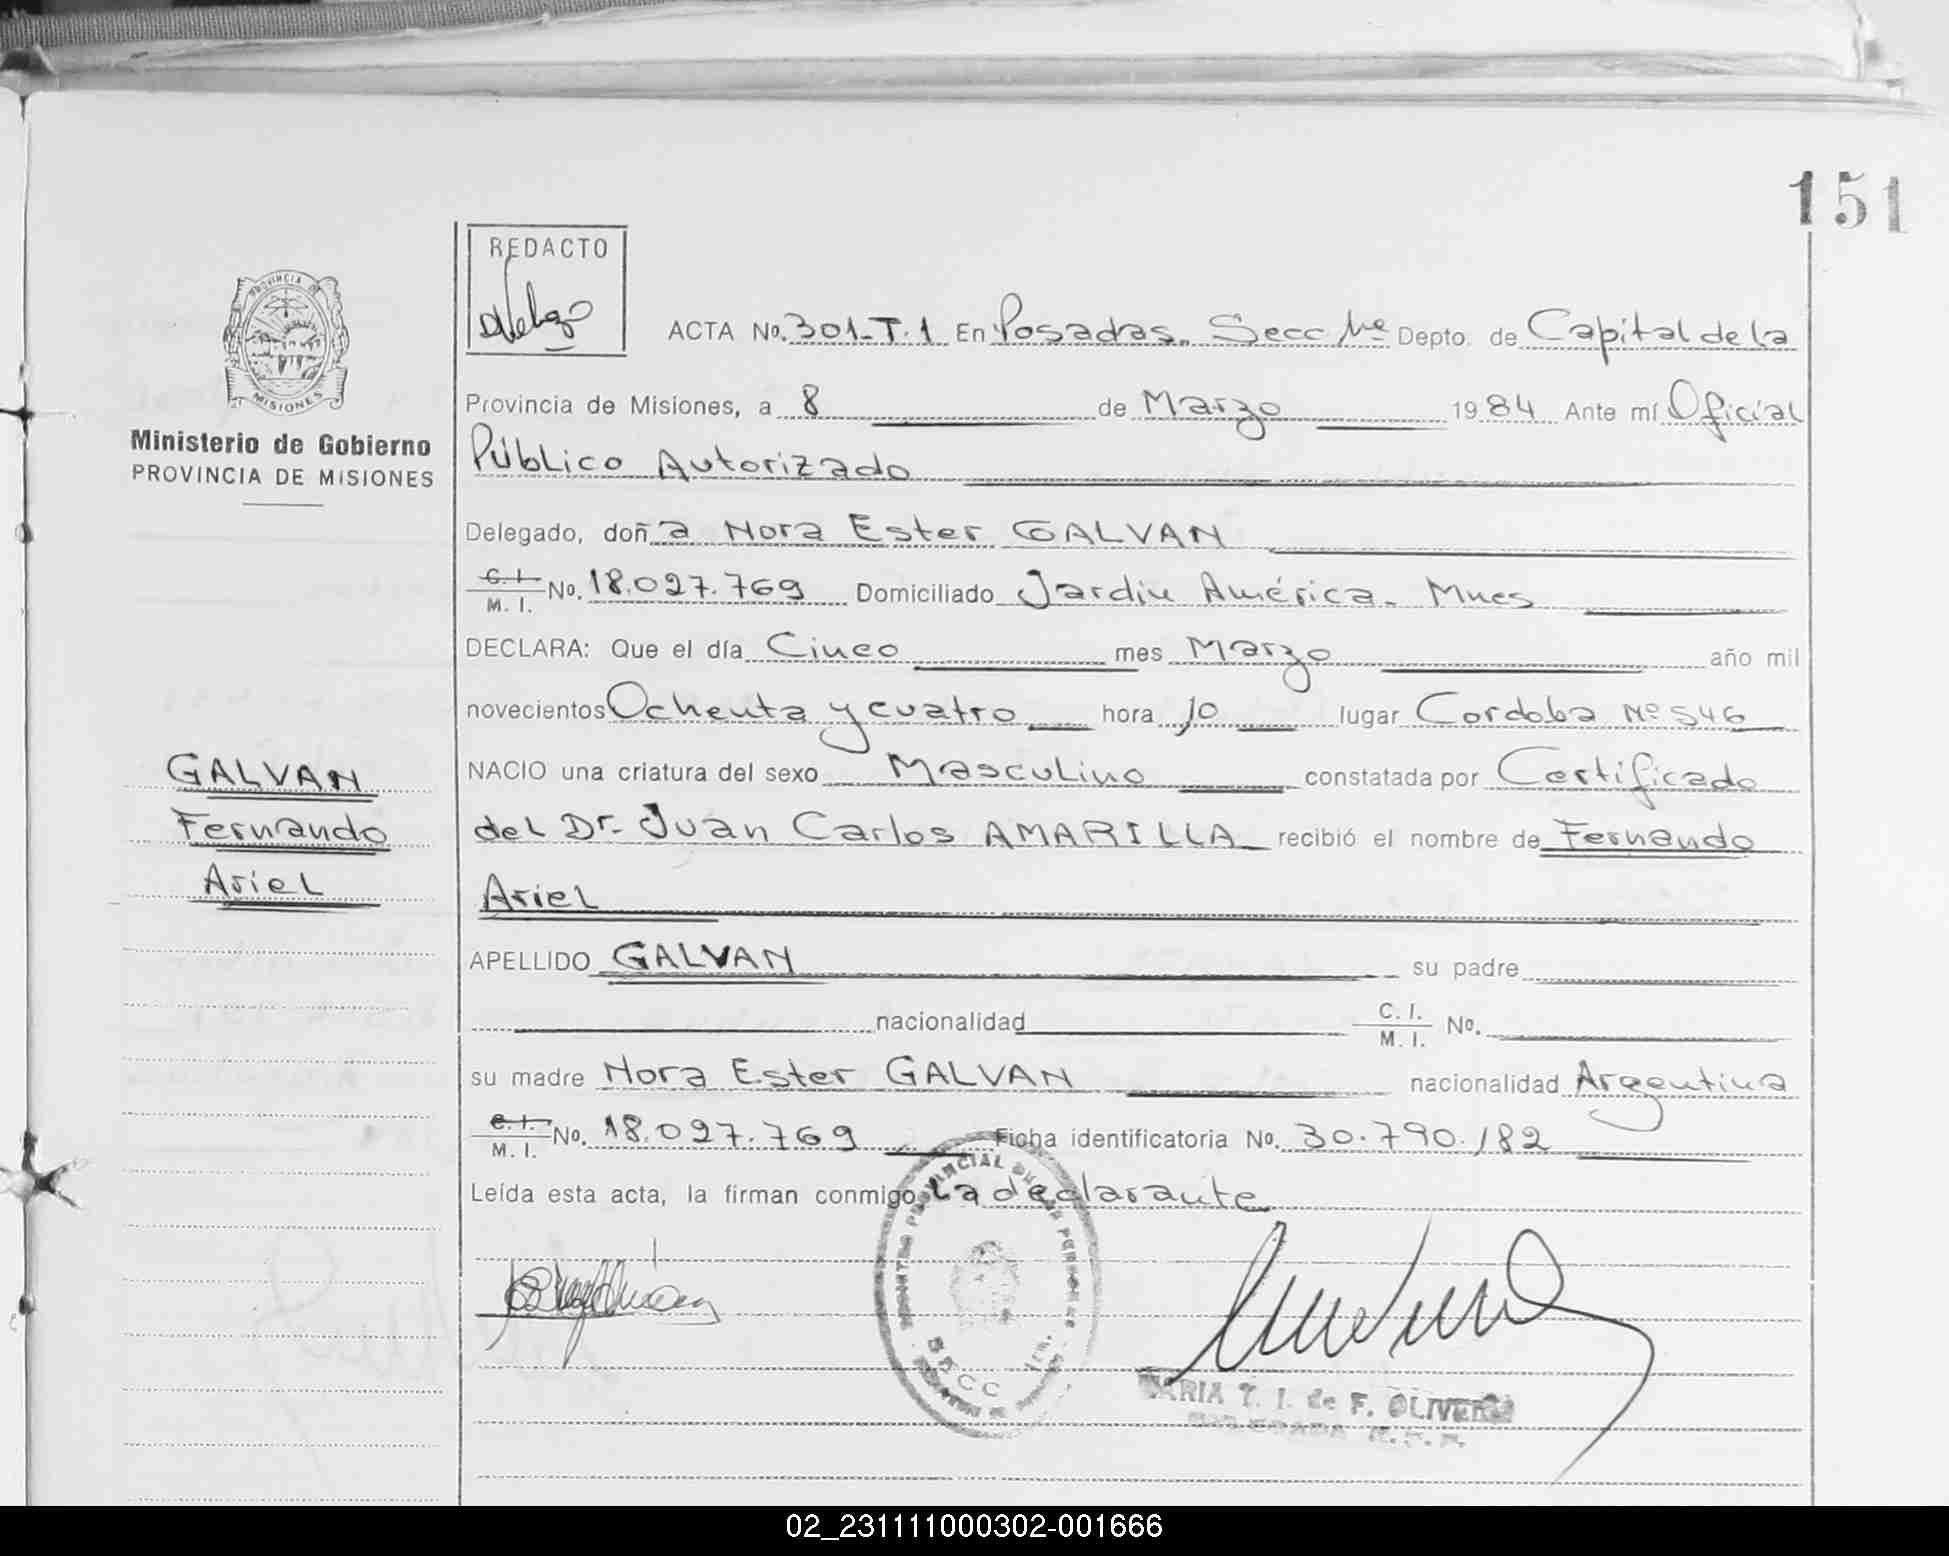 151
REDACTO
PROVINCIA DE
MISIONES
Ministerio de Gobierno
PROVINCIA DE MISIONES
ACTA No. 301-T.1 En Posadas. Secc 1ra Depto. de Capital de la
Provincia de Misiones, a 8 de Marzo 1984 Ante mí Oficial
Público Autorizado
Delegado, doña Nora Ester GALVAN
C. I. M. I. No. 18.027.769 Domiciliado Jardín América. Mnes
DECLARA: Que el día Cinco mes Marzo año mil
novecientos Ochenta y cuatro hora 10 lugar Cordoba Nº 546
NACIO una criatura del sexo Masculino constatada por Certificado
GALVAN
Fernando
Ariel
del Dr. Juan Carlos AMARILLA recibió el nombre de Fernando
Ariel
APELLIDO GALVAN su padre
nacionalidad C. I. M. I. No.
su madre Nora Ester GALVAN nacionalidad Argentina
C. I. M. I. No. 18.027.769 Ficha identificatoria No. 30.790.182
Leída esta acta, la firman conmigo La declarante
SECC 1ra.
MARIA T. I. de F. OLIVERA
DELEGADA R.P.P.
02_231111000302-001666